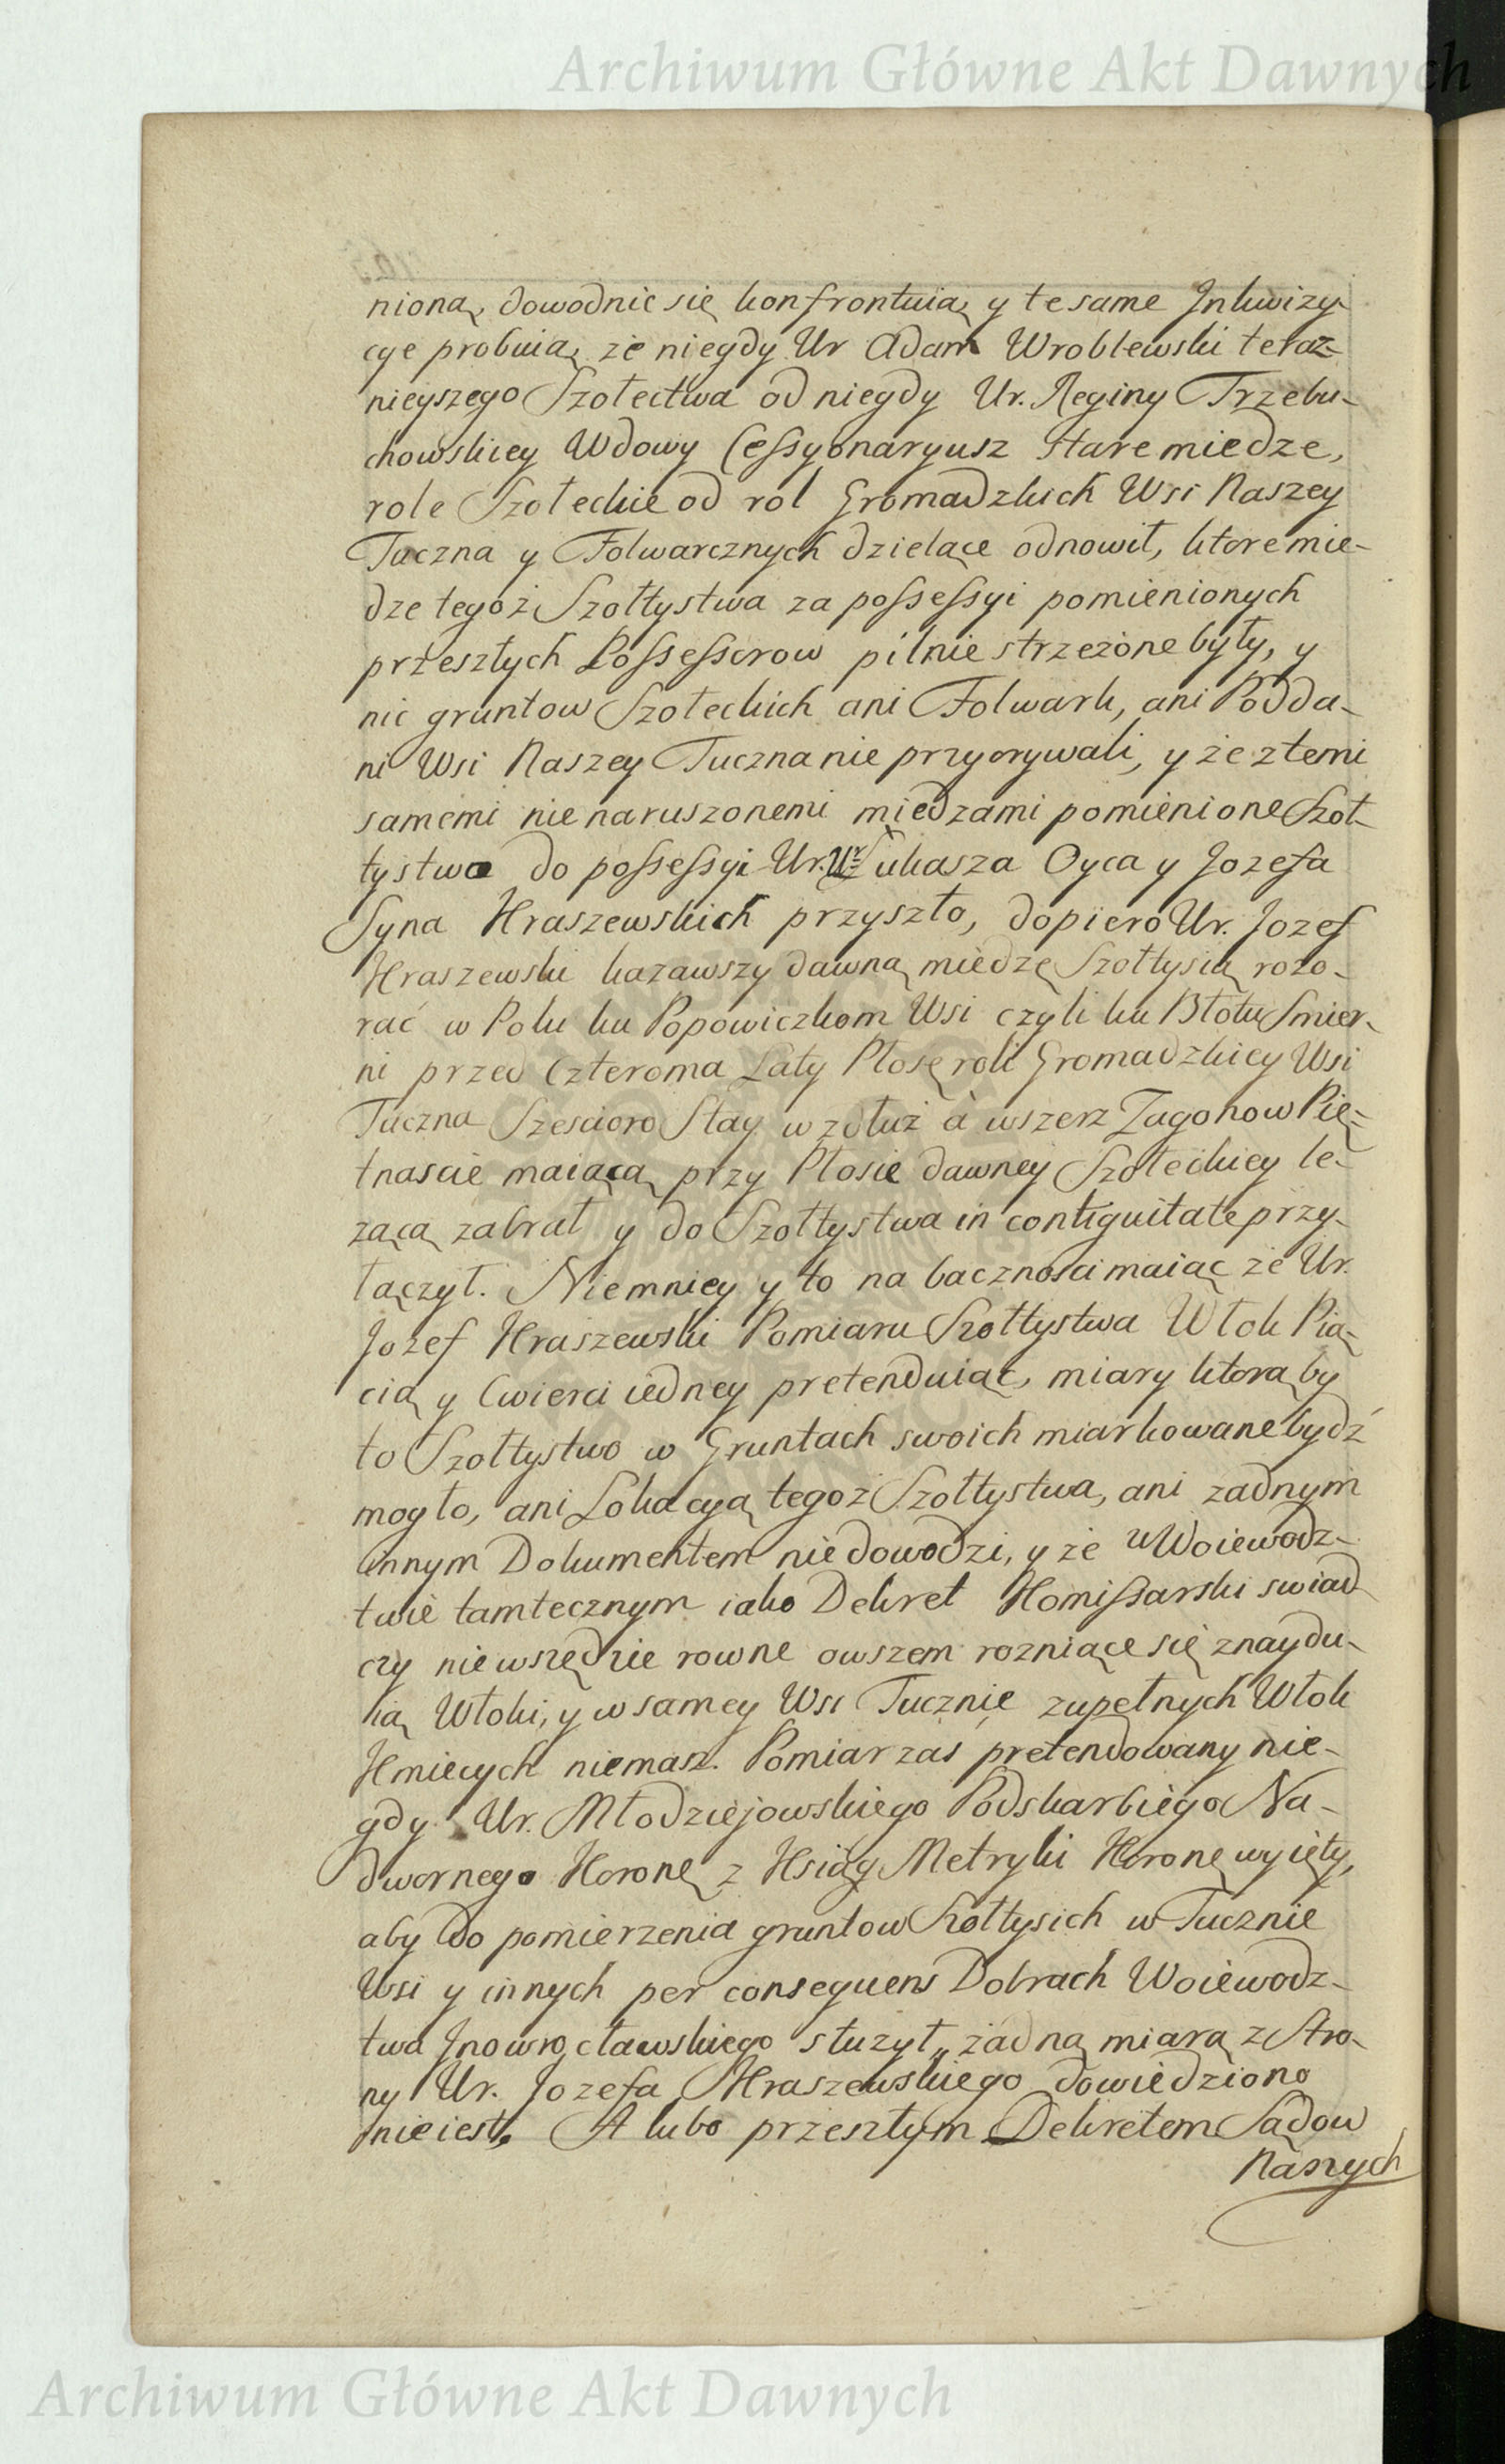 Archiwum Główne Akt Dawnych
nioną, dowodnie się konfrontuią y te same Jnkwizy-
cye probuią, że niegdy Ur Adam Wroblewski teraz-
nieyszego Szołectwa od niegdy Ur. Reginy Trzebu-
chowskiey Wdowy Cessyonaryusz stare miedze,
role Szołeckie od rol Gromadzkich Wsi Naszey
Tuczna y Folwarcznych dzielące odnowił, ktore mie-
dze tegoż Szołtystwa za possessyi pomienionych
przeszłych Possessorow pilnie strzeżone były, y
nic gruntow Szołeckich ani Folwark, ani Podda-
ni Wsi Naszey Tuczna nie przyorywali, y że z temi
samemi nienaruszonemi miedzami pomienione Szoł-
tystwo do possessyi Ur. Ur Łukasza Oyca y Jozefa
Syna Kraszewskich przyszło, dopiero Ur. Jozef
Kraszewski kazawszy dawną miedzę Szołtysią rozo-
rać w Polu ku Popowiczkom Wsi czyli ku Błotu Smier-
ni przed Czteroma Laty Płosę roli Gromadzkiey Wsi
Tuczna Szescioro Stay wzdłuż à wszerz Zagonow Pię-
tnascie maiącą przy Płosie dawney Szołeckiey le-
żącą zabrał y do Szołtystwa in contiguitate przy-
łączył. Niemniey y to na bacznosci maiąc że Ur.
Jozef Kraszewski Pomiaru Szołtystwa Włok Pią-
cią y Cwierci iedney pretenduiąc, miary ktorą by
to Szołtystwo w Gruntach swoich miarkowane bydź
mogło, ani Lokacyą tegoż Szołtystwa, ani żadnym
innym Dokumentem nie dowodzi, y że w Woiewodz-
twie tamtecznym iako Dekret Komissarski swiad-
czy nie wszędzie rowne owszem rozniące się znaydu-
ią Włoki, y w samey Wsi Tucznie zupełnych Włok
Kmiecych niemasz. Pomiar zaś pretendowany nie-
gdy Ur. Młodziejowskiego Podskarbiego Na-
dwornego Koronę z Ksiąg Metryki Koronę wyięty,
aby do pomierzenia gruntow Szołtysich w Tucznie
Wsi y innych per consequens Dobrach Woiewodz-
twa Jnowrocławskiego służył, żadną miarą z Stro-
ny Ur. Jozefa Kraszewskiego dowiedziono
nie iest. A lubo przeszłym Dekretem Sądow
Naszych
Archiwum Główne Akt Dawnych